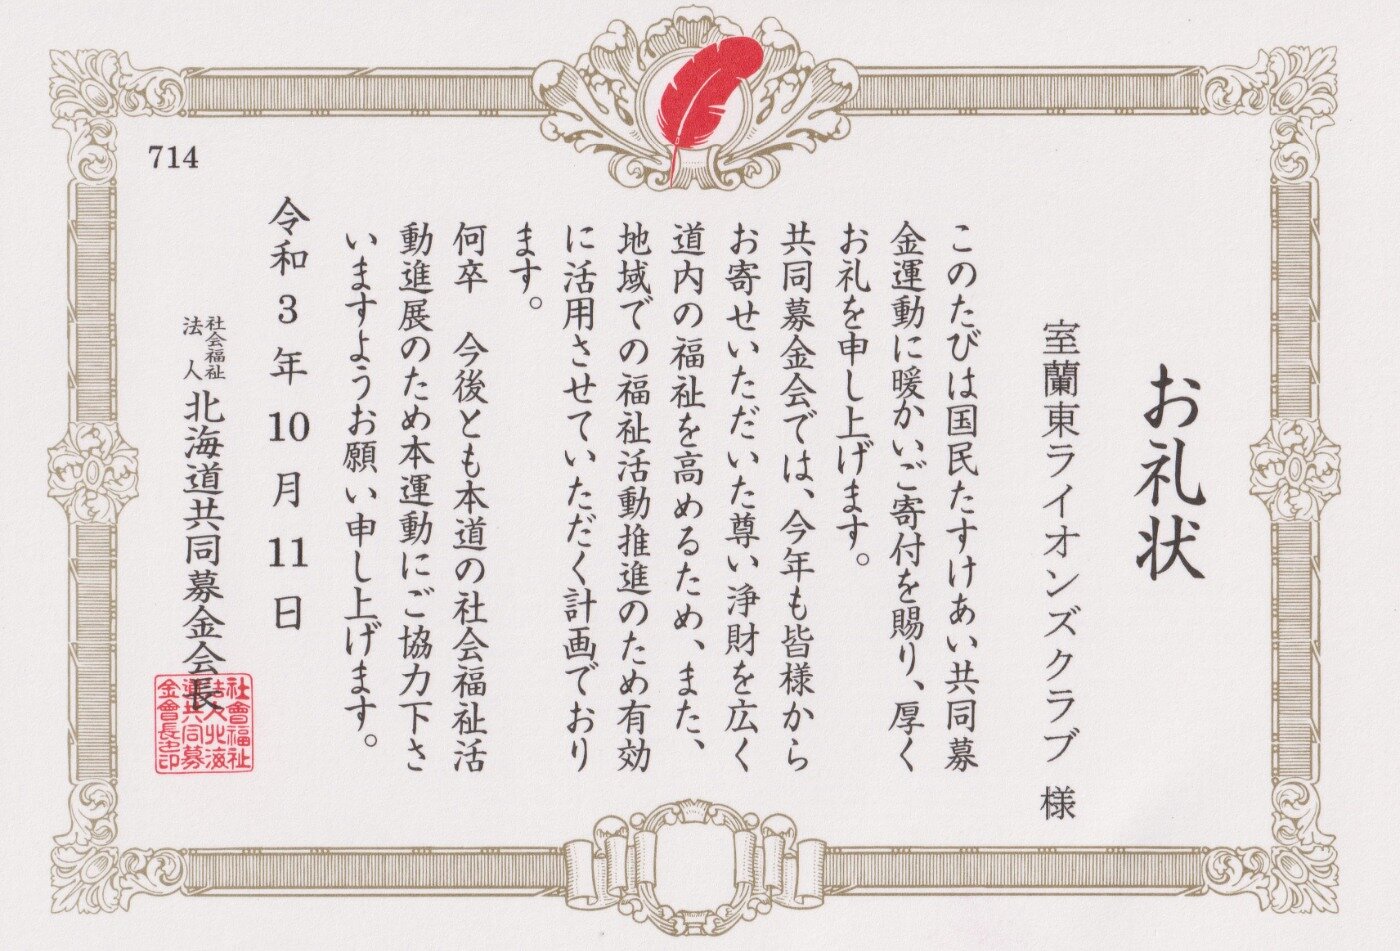 お礼状
室蘭東ライオンズクラブ 様
このたびは国民たすけあい共同募
金運動に暖かいご寄付を賜り、厚く
お礼を申し上げます。
共同募金会では、今年も皆様から
お寄せいただいた尊い浄財を広く
道内の福祉を高めるため、また、
地域での福祉活動推進のため有効
に活用させていただく計画でおり
ます。
何卒　今後とも本道の社会福祉活
動進展のため本運動にご協力下さ
いますようお願い申し上げます。
令和3年10月11日
社会福祉
法人
北海道共同募金会長
社會福祉
法人北海
道共同募
金會長之印
714